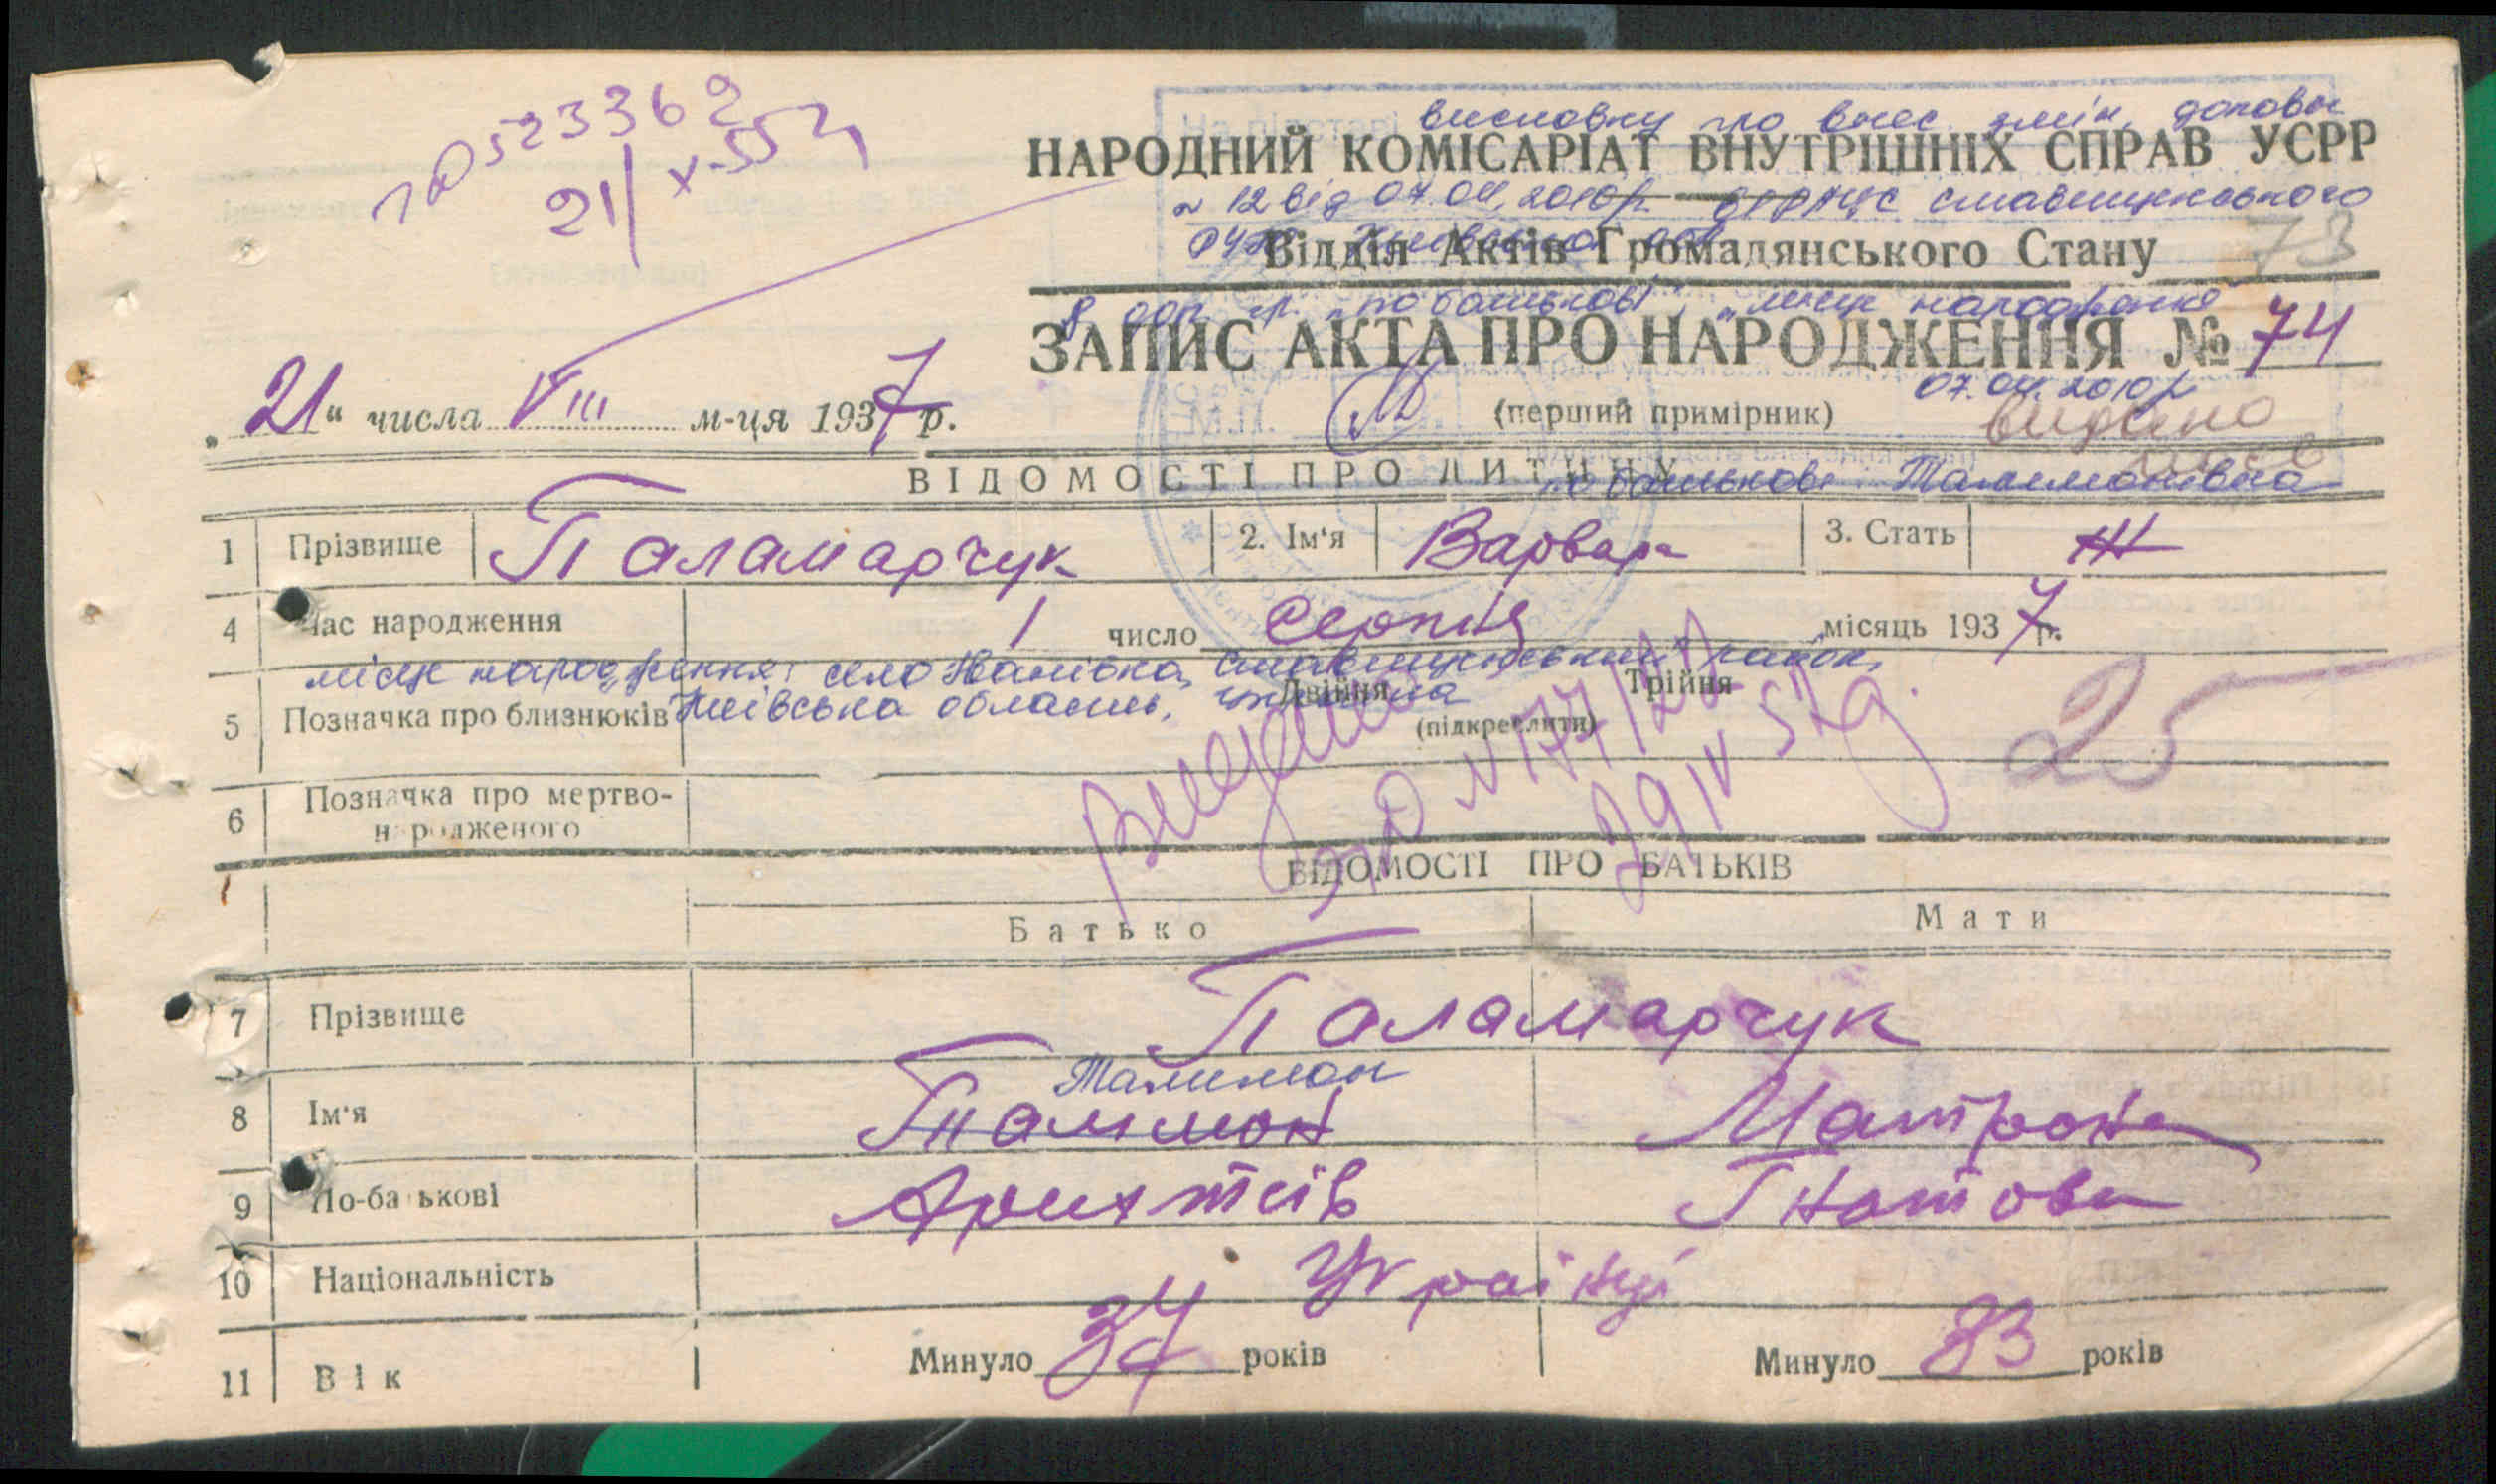 0523362
21/X-55
На підставі висновку про внес. змін, доповн
НАРОДНИЙ КОМІСАРІАТ ВНУТРІШНІХ СПРАВ УСРР
№ 12 від 07.04.2010р. ВДРАЦС Ставищенського
РУЮ Київської обл
Відділ Актів Громадянського Стану 73
доп. гр. "по батькові", "місце народження"
ЗАПИС АКТА ПРО НАРОДЖЕННЯ № 74
07.04.2010р
„21“ числа VIII м-ця 1937 р.
М.П.
(перший примірник)
видано
ВІДОМОСТІ ПРО ДИТИНУ
по батькові Талимонівна
1 Прізвище Паламарчук 2. Ім‘я Варвара 3. Стать Ж
4 Час народження 1 число серпня місяць 1937 р.
місце народження: село Іванівка, Ставищенський район,
Київська область, Україна
5 Позначка про близнюків Двійня Трійня
(підкреслити)
Видано
№ 177/122
25
6 Позначка про мертво-
народженого
ВІДОМОСТІ ПРО БАТЬКІВ
Батько Мати
7 Прізвище Паламарчук
Талимон
8 Ім‘я Талімон Матрона
9 По-батькові Гнатовна
10 Національність Українці
11 Вік Минуло 34 років Минуло 33 років